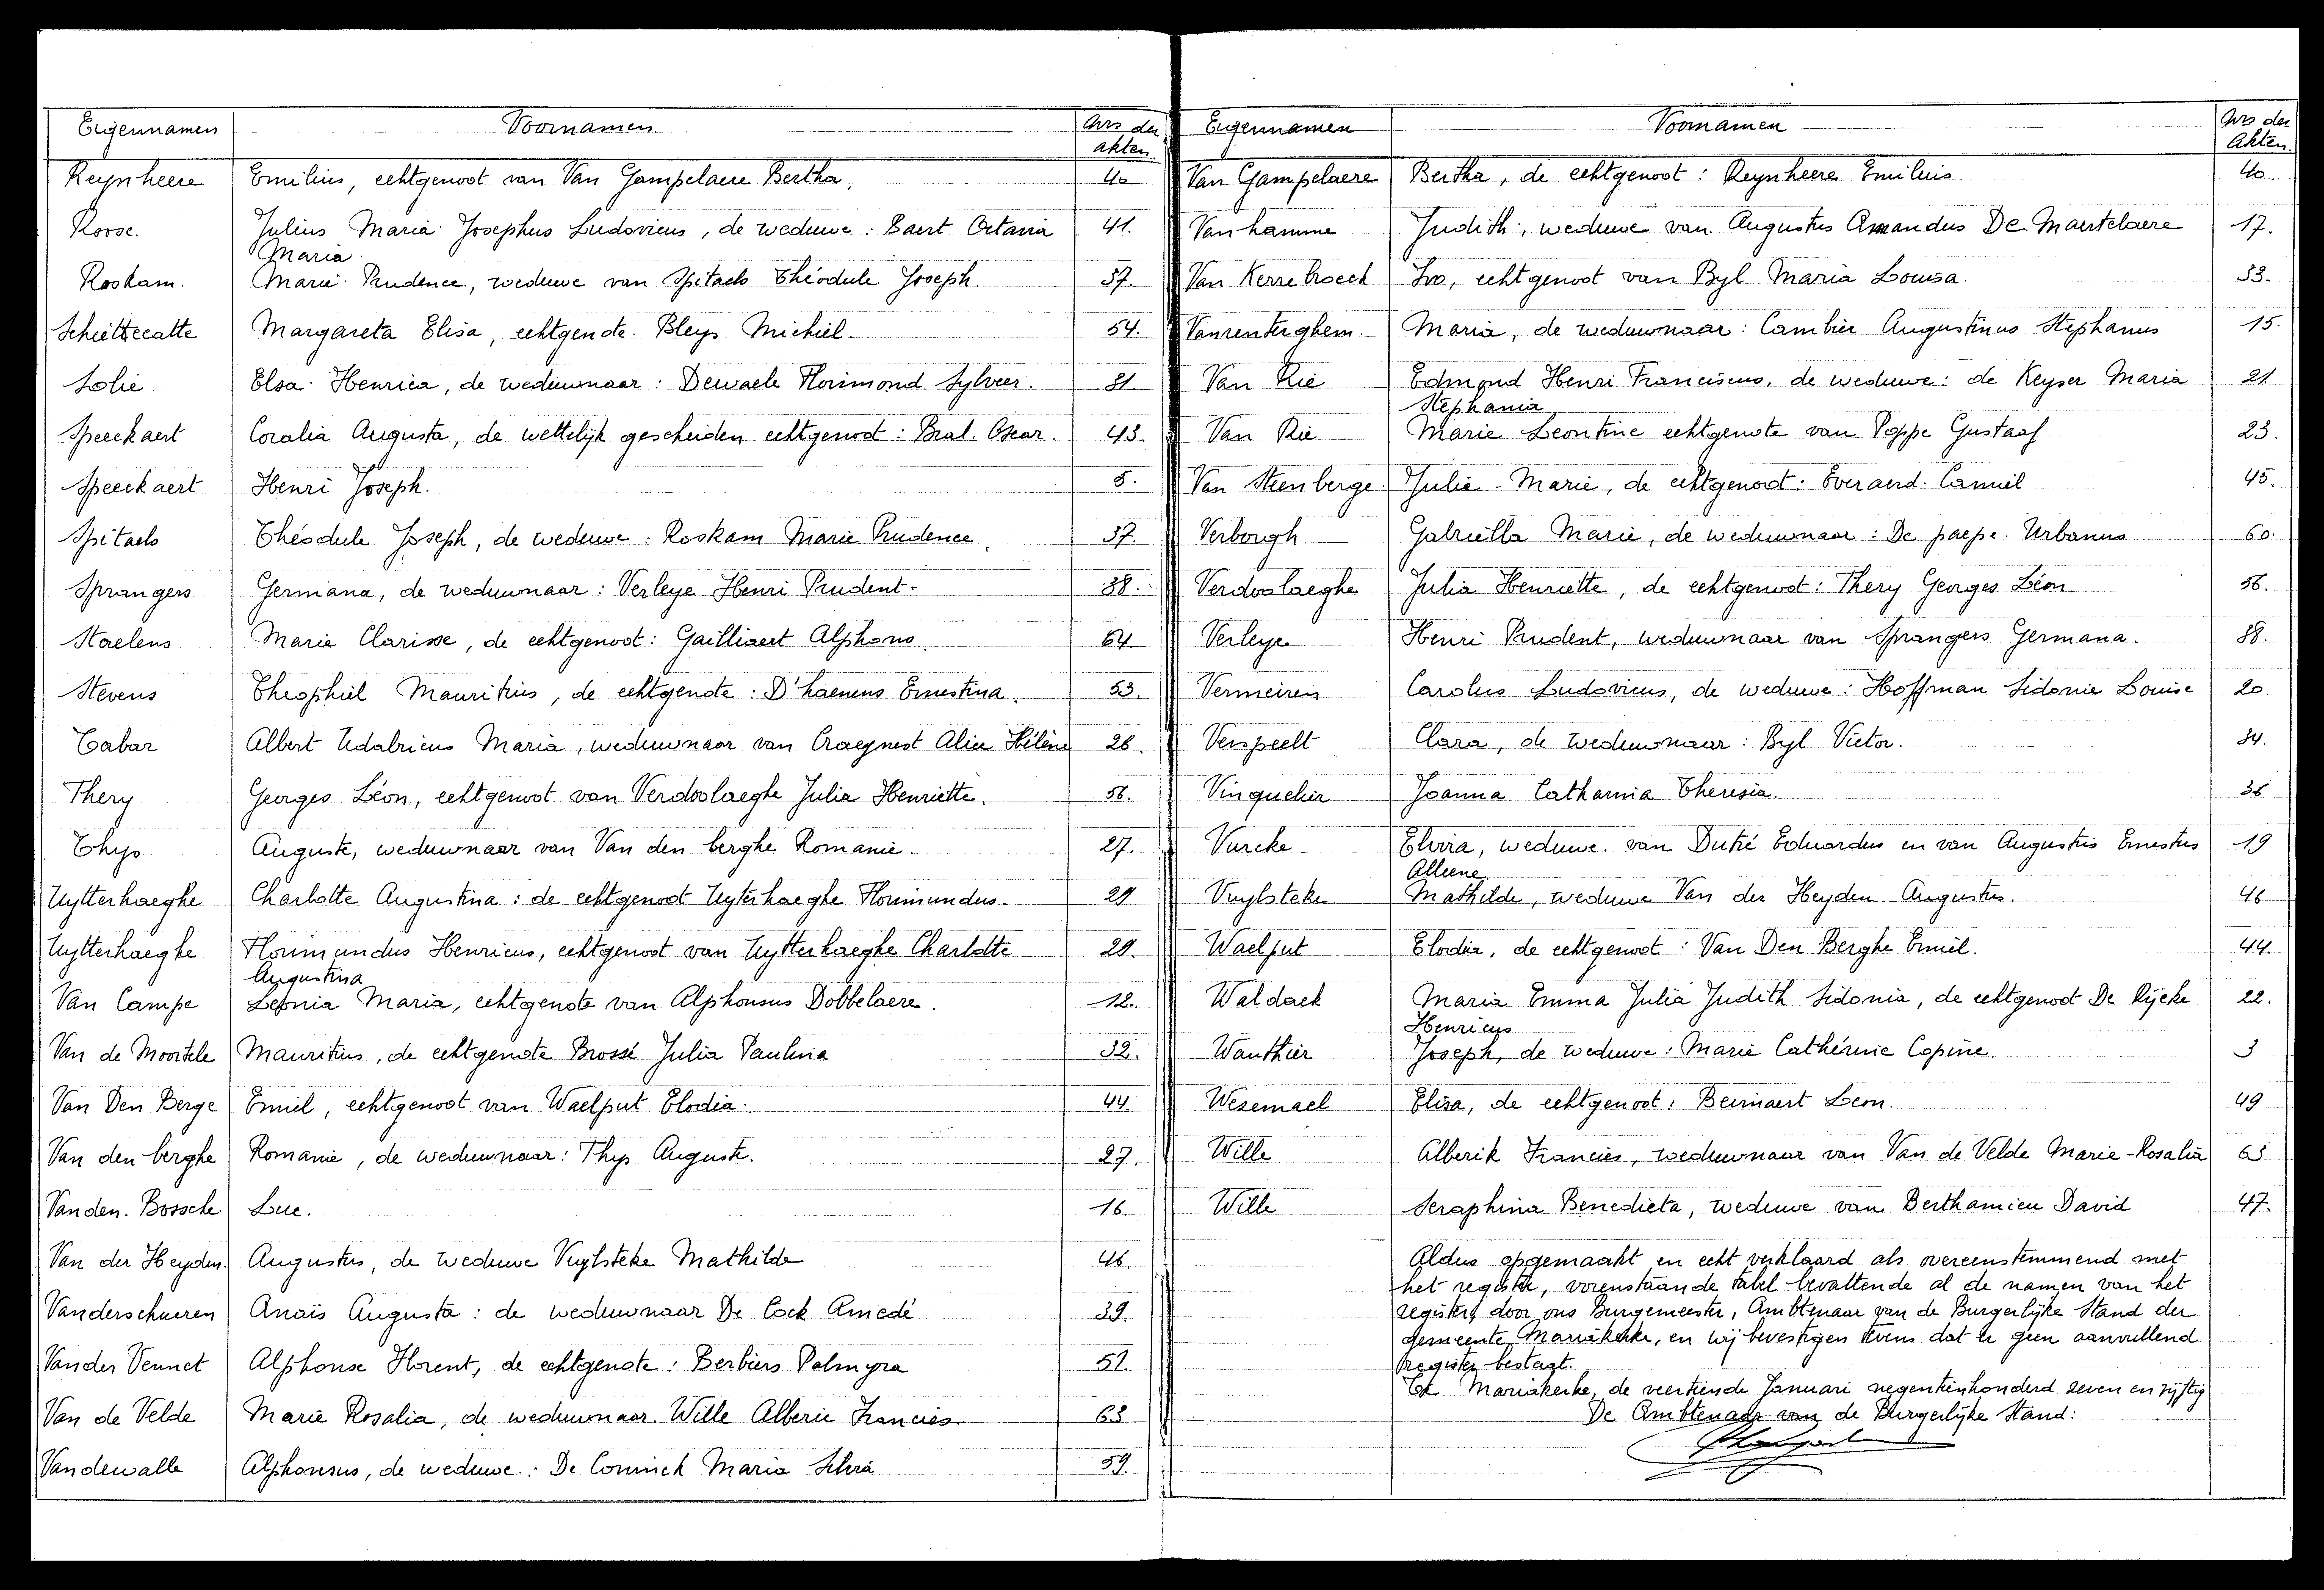 Eigennamen Voornamen Nrs der akten
Reynheere Emilius, echtgenoot van Van Gampelaere Bertha, 40
Roose. Julius Maria Josephus Ludovicus, de weduwe: Baert Octavia 41.
Maria
Roskam. Marie Prudence, weduwe van Spitaels Théodule Joseph. 37.
Schiettecatte Margareta Elisa, echtgenote. Bleys Michiel. 54.
Solie Elsa Henrica, de weduwnaar: Dewaele Florimond Sylveer. 31.
Speeckaert Coralia Augusta, de wettelijk gescheiden echtgenoot: Bral. Oscar. 43.
Speeckaert Henri Joseph. 5.
Spitaels Théodule Joseph, de weduwe: Roskam Marie Prudence. 37.
Sprangers Germana, de weduwnaar: Verleye Henri Prudent. 38.
Staelens Marie Clarisse, de echtgenoot: Gailliaert Alphons. 64.
Stevens Theophiel Mauritius, de echtgenote: D'haenens Ernestina. 53.
Tabar Albert Udalricus Maria, weduwnaar van Craeynest Alice Hélène 26.
Thery Georges Léon, echtgenoot van Verdoolaeghe Julia Henriette. 56.
Thys Auguste, weduwnaar van Van den berghe Romanie. 27.
Uytterhaeghe Charlotte Augustina: de echtgenoot Uyterhaeghe Florimundus. 29
Uytterhaeghe Florimundus Henricus, echtgenoot van Uytterhaeghe Charlotte 29.
Augustina
Van Campe Leonia Maria, echtgenote van Alphonsus Dobbelaere. 12.
Van de Moortele Mauritius, de echtgenote Brossé Julia Paulina 32.
Van Den Berge Emiel, echtgenoot van Waelput Elodia. 44.
Van den berghe Romanie, de weduwnaar: Thys Auguste. 27.
Vanden. Bossche Luc. 16.
Van der Heyden. Augustus, de weduwe Vuylsteke Mathilde 46.
Vanderschueren Anaïs Augusta: de weduwnaar De Cock Amedé 39.
Vander Vennet Alphonse Florent, de echtgenote: Berbiers Palmyra 51.
Van de Velde Marie Rosalia, de weduwnaar. Wille Alberic Francies. 63
Vandewalle Alphonsus, de weduwe.: De Coninck Maria 59.
Eigennamen Voornamen Nrs der Akten.
Van Gampelaere Bertha, de echtgenoot: Reynheere Emilius 40.
Vanhamme Judith, weduwe van Augustus Amandus De Mantelaere 17.
Van Kerrebroeck Ivo, echtgenoot van Byl Maria Louisa. 33.
Vanrenterghem. Maria, de weduwnaar: Cambier Augustinus Stephanus 15.
Van Rie Edmond Henri Franciscus, de weduwe: de Keyser Maria 21.
Stephania
Van Rie Marie Leontine echtgenote van Poppe Gustaaf 23.
Van Steenberge Julie-Marie, de echtgenoot: Everaerd. Camiel 45.
Verborgh Gabriella Marie, de weduwnaar: De paepe. Urbanus 60.
Verdoolaeghe Julia Henriette, de echtgenoot: Thery Georges Léon. 56.
Verleye Henri Prudent, weduwnaar van Sprangers Germana. 38.
Vermeiren Carolus Ludovicus, de weduwe: Hoffman Sidonie Louise 20.
Verspeelt Clara, de weduwnaar: Byl Victor. 34.
Vinquekier Joanna Catharina Theresia. 36
Vurcke Elvira, weduwe. van Dutré Eduardus en van Augustus Ernestus 19
Alleene.
Vuylsteke Mathilde, weduwe Van der Heyden Augustus. 46
Waelput Elodia, de echtgenoot: Van Den Berghe Emiel. 44.
Waldack Maria Emma Julia Judith Sidonia, de echtgenoot De Rijcke 22.
Henricus
Wauthier Joseph, de weduwe: Marie Cathérine Copine. 3
Wesemael Elisa, de echtgenoot: Beirnaert Leon. 49
Wille Alberik Francies, weduwnaar van Van de Velde Marie-Rosalia 63
Wille Seraphina Benedicta, weduwe van Berthamieu David 47.
Aldus opgemaakt en echt verklaard als overeenstemmend met
het register, vorenstaande tabel bevattende al de namen van het
register, door ons Burgemeester, Ambtenaar van de Burgerlijke Stand der
gemeente Mariakerke, en wij bevestigen tevens dat er geen aanvullend
register bestaat.
Te Mariakerke, de veertiende Januari negentienhonderd zeven en vijftig
De Ambtenaar van de Burgerlijke Stand: